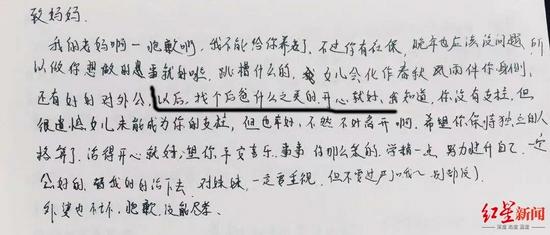 致妈妈.
我的老妈啊一抱歉哟,我不能给你养老了,不过你有社保,晚年也应该没问题,所
以做你想做的就好啦,跳槽什么的,女儿会化作春秋风雨伴你身侧,
还有好好对外公,以后,找个后爸什么之类的.开心就好,我知道,你没有支柱,但
很遗憾女儿未能成为你的支柱,但也幸好,不然不好离开啊.希望你保持独立的人
格算了,活得开心就好,望你平安喜乐.事事 什么的.学精一点,努力提升自己.一定
会好的. 好好治下去.对妹妹,一定要重视,但不要过
外婆也不 ,抱歉,没能尽孝.
红星新闻
深度 态度 温度